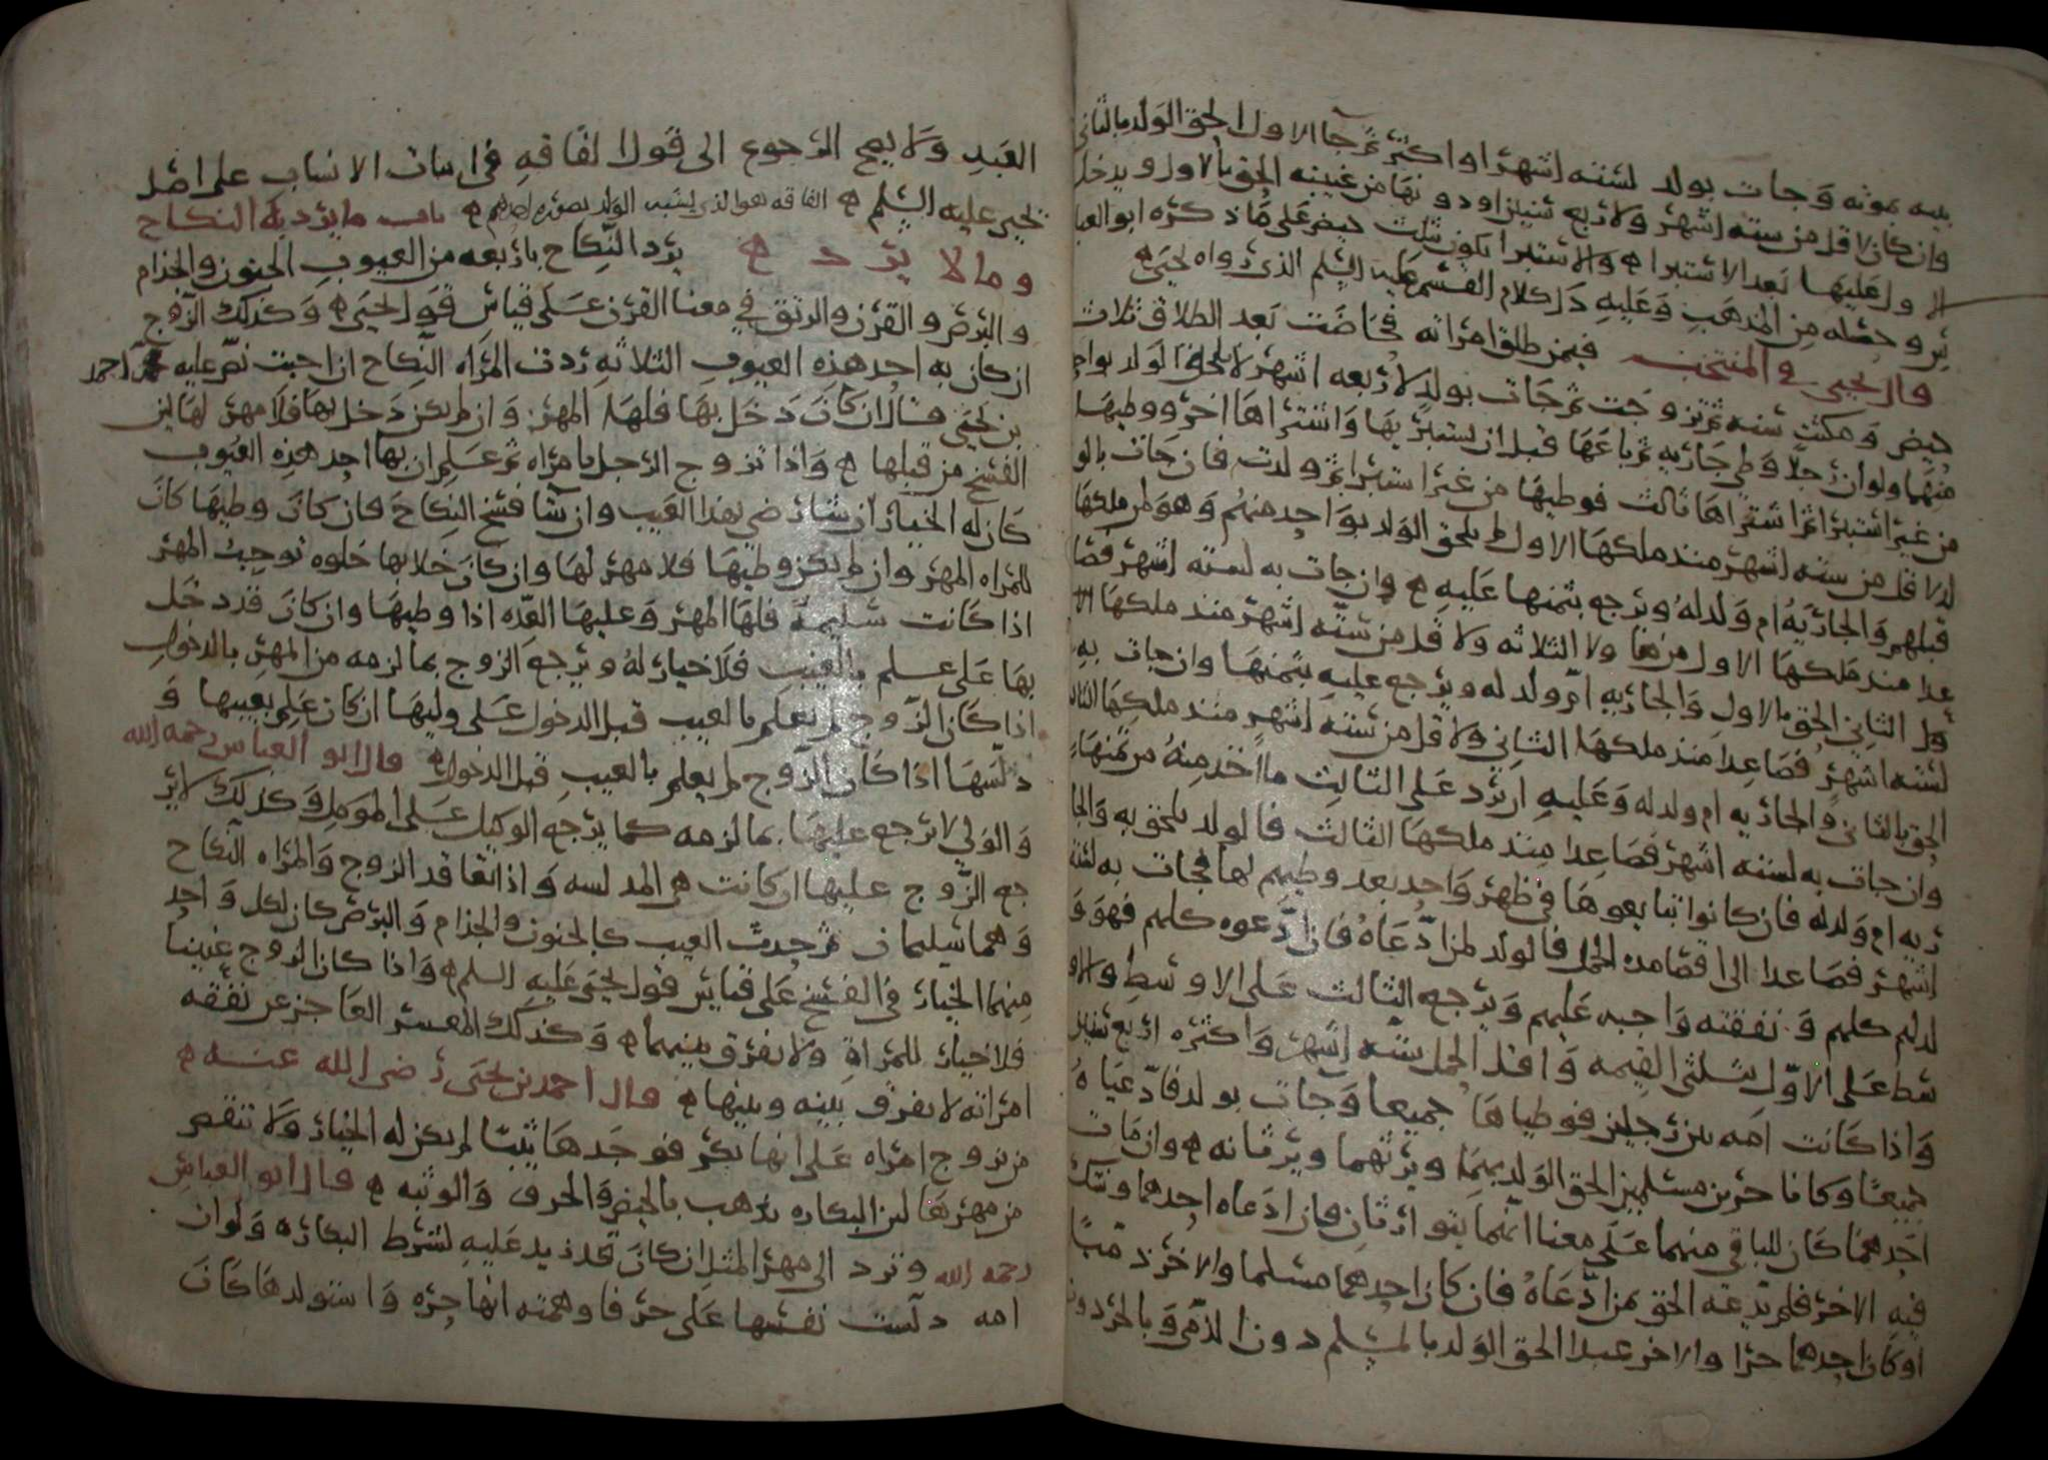 بينه بموته وجات بولد لستة اشهر او اكثر ثم جا الاول لحق الولد بالثاني
وان كان لاقل من ستة اشهر ولاربع سنين او دونها من غيبته لحق بالاول ويدخل
الاول عليها بعد الاستبرا والاستبرا يكون بثلث حيض على ما ذكره ابو العبا
س وحصله من المذهب وعليه دل كلام القسم عليه السلم الذي رواه يحيى
قال يحيى في المنتخب فيمن طلق امراته فحاضت بعد الطلاق ثلاث
حيض ومكثت سنه ثم تزوجت ثم جات بولد لاربعه اشهر لا يلحق الولد بواحد
منهما ولو ان رجلا وطي جاريه ثم باعها قبل ان يستبريها واشتراها اخر ووطيها
من غير استبرا ثم اشتراها ثالث فوطيها من غير استبرا ثم ولدت فان جات بالو
لد لاقل من ستة اشهر منذ ملكها الاول لم يلحق الولد بواحد منهم وهو لمن ملكها
قبلهم والجاريه ام ولد له ويرجع بثمنها عليه وان جات به لستة اشهر فصا
عدا منذ ملكها الاول ولاقل من ستة اشهر منذ ملكها
الثاني لحق بالاول والجاريه ام ولد له ويرجع عليه بثمنها وان جات به
لستة اشهر فصاعدا منذ ملكها الثاني ولاقل من ستة اشهر منذ ملكها الثالث
لحق بالثاني والجاريه ام ولد له وعليه ان يرد على الثالث ما اخذ منه من ثمنها
وان جات به لستة اشهر فصاعدا منذ ملكها الثالث فالولد يلحق به والجا
ريه ام ولد له فان كانوا تبايعوها في طهر واحد بعد وطيهم لها فجات به لستة
اشهر فصاعدا الى اقصا مدة الحمل فالولد لمن ادعاه فان ادعوه كلهم فهو و
لد لهم كلهم ونفقته واجبه عليهم ويرجع الثالث على الاوسط والاو
سط على الاول بثلثي القيمه واقل الحمل ستة اشهر واكثره اربع سنين
واذا كانت امه بين رجلين فوطياها جميعا وجات بولد فادعياه
جميعا وكانا حرين مسلمين لحق الولد بهما ويرثهما ويرثانه وان مات
احدهما كان للباقي منهما على معنا انهما يتوارثان فان ادعاه احدهما وشك
فيه الاخر فلم يدعه لحق بمن ادعاه فان كان احدهما مسلما والاخر ذميا
او كان احدهما حرا والاخر عبدا لحق الولد بالمسلم دون الذمي وبالحر دون
العبد ولا يصح الرجوع الى قول القافه في اثبات الانساب على اصل
يحيى عليه السلم القافه هو الذي يشبه الولد بصوره احدهم باب ما يرد به النكاح
وما لا يرد يرد النكاح باربعه من العيوب الجنون والجذام
والبرص والقرن والرتق في معنا القرن على قياس قول يحيى وكذلك الزوج
ان كان به احد هذه العيوب الثلاثه ردت المراه النكاح ان احبت نص عليه احمد
بن يحيى قال ان كان دخل بها فلها المهر وان لم يكن دخل بها فلا مهر لها لان
الفسخ من قبلها واذا تزوج الرجل بامراه ثم علم ان بها احد هذه العيوب
كان له الخيار ان شا رضي بهذا العيب وان شا فسخ النكاح فان كان وطيها كان
للمراه المهر وان لم يكن وطيها فلا مهر لها وان كان خلا بها خلوه توجب المهر
اذا كانت سليمة فلها المهر وعليها العده اذا وطيها وان كان قد دخل
بها على علم بالعيب فلا خيار له ويرجع الزوج بما لزمه من المهر بالدخول
اذا كان الزوج لم يعلم بالعيب قبل الدخول على وليها ان كان علم بعيبها و
دلسها اذا كان الزوج لم يعلم بالعيب قبل الدخول قال ابو العباس رحمه الله
والولي لا يرجع عليها بما لزمه كما يرجع الوكيل على الموكل وكذلك لا ير
جع الزوج عليها ان كانت هي المدلسه واذا تعاقد الزوج والمراه النكاح
وهما سليمان ثم حدث العيب كالجنون والجذام والبرص كان لكل واحد
منهما الخيار في الفسخ على قياس قول يحيى عليه السلم واذا كان الزوج عنينا
فلا خيار للمراة ولا يفرق بينهما وكذلك المعسر العاجز عن نفقه
امراته لا يفرق بينه وبينها قال احمد بن يحيى رضي الله عنه
من تزوج امراه على انها بكر فوجدها ثيبا لم يكن له الخيار ولا تنقص
من مهرها لان البكاره تذهب بالحيض والحرق والوثبه قال ابو العباس
رحمه الله وترد الى مهر المثل ان كان قد زيد عليه لشرط البكاره ولو ان
امه دلست نفسها على حر فاوهمته انها حره واستولدها كان